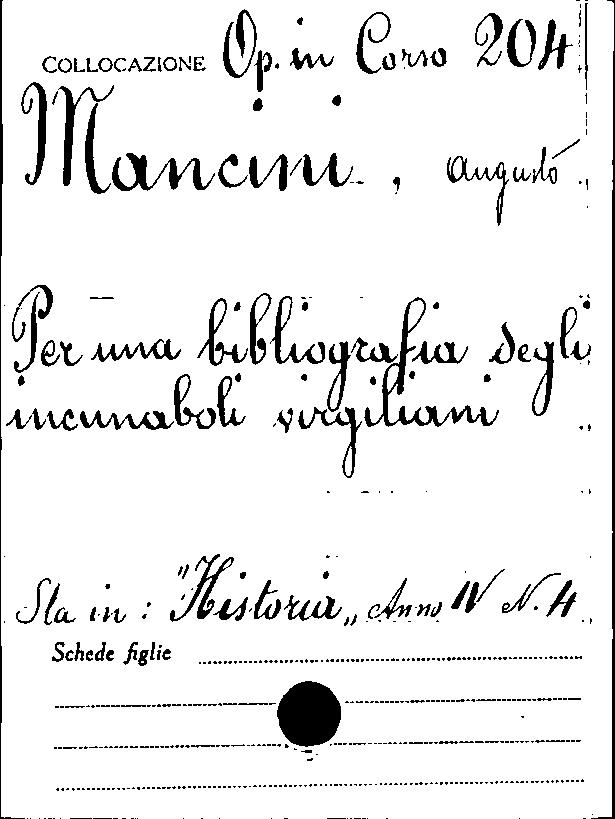 COLLOCAZIONE Op. in Corso 204
Mancini, Augusto
Per una bibliografia degli
incunaboli virgiliani
Sta in: "Historia" Anno IV N. 4
Schede figlie